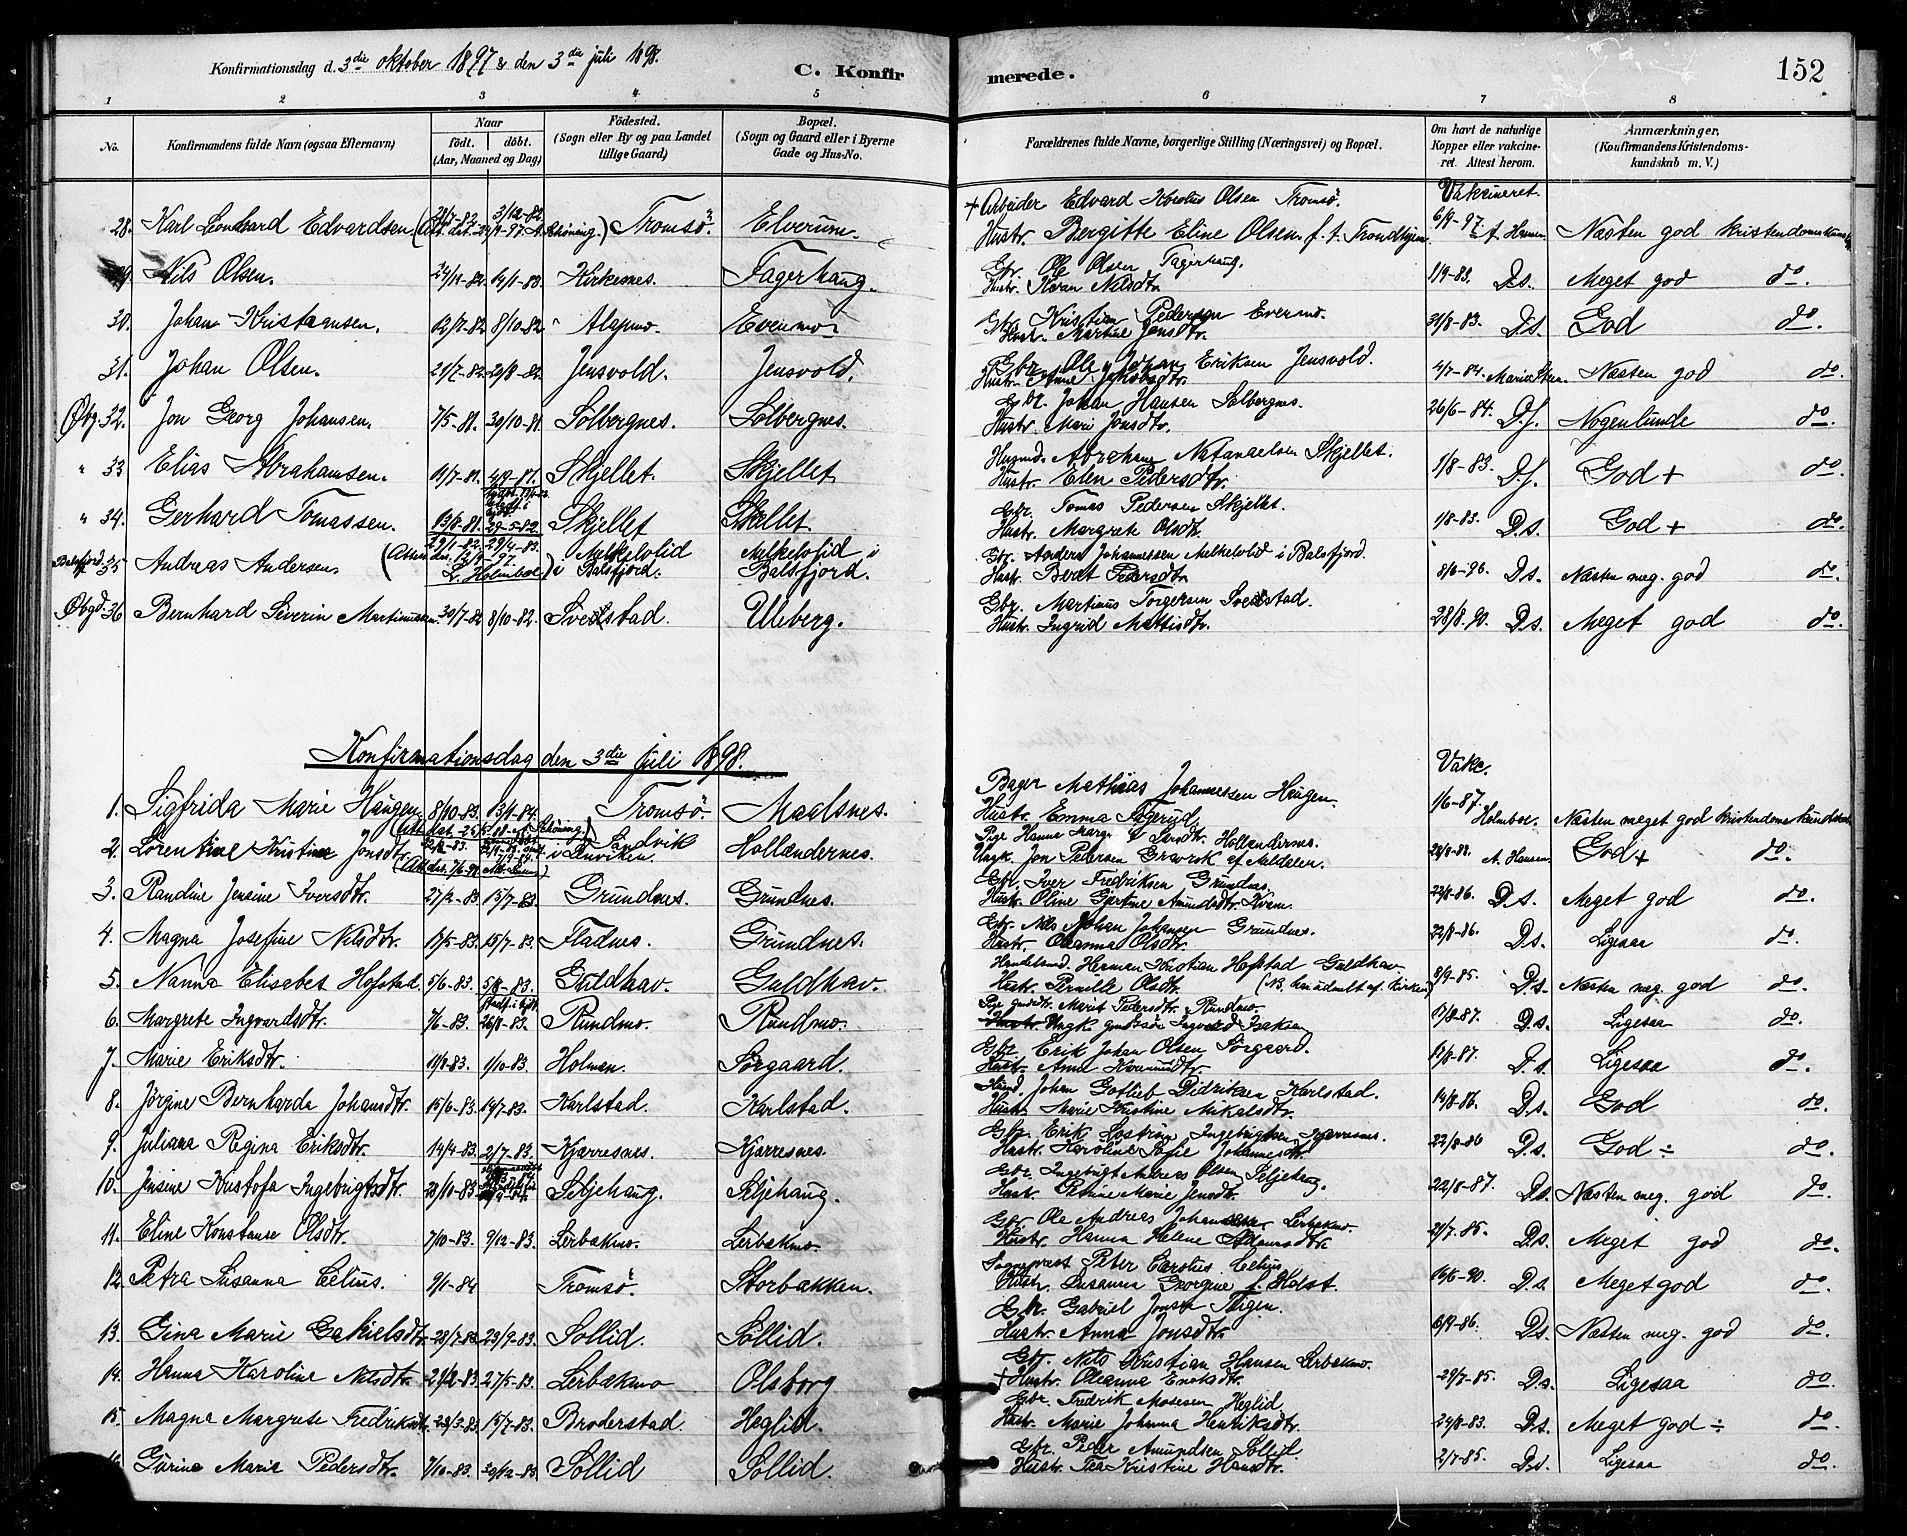 Konfirmationsdag d. 3die oktober 1897 & den 3die juli 1898.
C. Konfirmerede.
152
1 2 3 4 5 6 7 8
No.
Konfirmandens fulde Navn (ogsaa Efternavn)
Naar
født. døbt.
(Aar, Maaned og Dag)
Födested.
(Sogn eller By og paa Landet
tillige Gaard)
Bopæl.
(Sogn og Gaard eller i Byerne
Gade og Hus-No.
Forældrenes fulde Navne, borgerlige Stilling (Næringsvei) og Bopæl.
Om havt de naturlige
Kopper eller vakcine-
ret. Attest herom.
Anmærkninger.
(Konfirmandens Kristendoms-
kundskab m. V.)
+ Arbeider Edvard Olsen Tromsö. Vakcineret
28. Karl Leonhard Edvardsen 3/12-82 Tromsö. Elverum. Hustr. Bergitte Eline Olsen f. i Trondhjem 6/9-97. A. Hansen Næsten god kristendomskundsk.
29. Nils Olsen. 24/11-82 14/1-83. Kirkesnes. Fagerhaug. Gbr. Ole Olsen Fagerhaug. 1/9-83. D.s. Meget god do.
Hustr. Karen Nilsdtr.
30. Johan Kristiansen. 12/7-82 8/10-82 Alapmo. Evenmo. Gbr. Kristian Pedersen Evenmo. 31/8-83. D.s. God do.
Hustr. Martine Jensdtr.
31. Johan Olsen. 21/7-82 20/8-82. Jensvold. Jensvold. Gbr. Ole Johan Eriksen Jensvold. 4/7-84. Næsten god do.
Hustr. Anne Jakobsdtr.
Øbg. 32. Jon Georg Johansen. 7/5-81. 30/10-81. Solbergnes. Solbergnes. Gbr. Johan Hansen Solbergnes. 26/6-84. D.s. Nogenlunde do
Hustr. Mari Jonsdtr.
" 33. Elias Abrahamsen. 11/7-81. 4/9-81. Skjellet. Skjellet. Husmd. Abraham Natanaelsen Skjellet. 1/8-83. D.s. God + do.
Hustr. Elen Pedersdtr.
" 34. Gerhard Tomassen. 13/8-81. 29-5-82 Skjellet Skjellet. Gbr. Tomas Pedersen Skjellet. 1/8-83. D.s. God + do.
Hustr. Margrete Olsdtr.
Balsfjord 35 Andreas Andersen. 29/1-82. 29/4-83. L. Holmboe Melkelvlid i Balsfjord. Melkelvlid i Balsfjord. Gbr. Anders Johannessen Melkelvlid i Balsfjord. 8/6-96. D.s. Næsten meg. god do.
Hustr. Berit Pedersdtr.
Øbgd. 36 Bernhard Severin Martinussen 30/7-82 8/10-82. Svedstad. Uleberg. Gbr. Martinus Torgersen Svedstad. 28/8-90. D.s. Meget god do.
Hustr. Ingrid Mattisdtr.
Konfirmationsdag den 3die juli 1898.
Vakc.
1. Sigfrida Marie Haugen 8/10-83. 13/1-84. Tromsö. Maalsnes. Bager Mathias Johannessen Haugen. 1/6-87. Holmboe. Næsten meget god kristendomskundskab
Hustr. Emma Fagerlid.
2. Lorentine Kristine Jonsdtr. Sandvik Hollændernes. Pige Hanna Hollændernes. A. Hansen God + do.
Ungk. Jon Pedersen Gravrok af Meldalen.
3. Randine Jensine Iversdtr. 27/2-83 15/7-83 Grundnes. Grundnes. Gbr. Iver Fredriksen Grundnes. 22/8-86. D.s. Meget god do.
Hustr. Oline Gjertine Amundsdtr. Kvam.
4. Magna Josefine Nilsdtr. 13/5-83. 15/7-83. Fladnes. Grundnes. Gbr. Nils Johan Johansen Grundnes. 22/8-86. D.s. Ligesaa do.
Hustr. Oleanna Olsdtr.
5. Nanna Elisabet Hofstad. 5/6-83. 5/8-83. Guldhav. Guldhav. Handelsmd. Herman Kristian Hofstad Guldhav. 8/9-85. D.s. Næsten meg. god do.
Hustr. Pernille Olsdtr. (NB. hun udmeldt af kirken)
6. Margrete Ingvardsdtr. 7/6-83. 26/8-83. Rundmo. Rundmo. Pige Marit Pedersdtr. Rundmo. 17/8-87. D.s. Ligesaa do.
Ungk. Ingvard Isaksen
7. Marie Eriksdtr. 11/8-83. 1/10-83. Holmen. Sørgaard. Gbr. Erik Johan Olsen Sørgaard. 17/8-87. D.s. Ligesaa do.
Hustr. Anne
8. Jørgine Bernharda Johansdtr. 15/6-83. 19/7-83. Karlstad. Karlstad. Johan Gotlieb Didriksen Karlstad. 14/8-86. D.s. God do.
Hustr. Marie Kristine Mikalsdtr.
9. Juliana Regina Eriksdtr. 14/4-83. 2/7-83. Kjærresnes. Kjærresnes. Gbr. Erik Ingebrigtsen Kjærresnes. 22/8-86 D.s. God ÷ do.
Hustr. Karoline Sofie Johannesdtr.
10. Jensine Kristofa Ingebrigtsdtr. 28/10-83 Seljehaug. Seljehaug. Gbr. Ingebrigt Andreas Olsen Seljehaug. 22/8-87. D.s. Næsten meg. god do.
Hustr. Petrine Marie Jensdtr.
11. Eline Konstanse Olsdtr. 7/10-83. 9/12-83. Lerbakmo. Lerbakmo. Gbr. Ole Andreas Johannessen Lerbakmo. 21/7-85. D.s. Meget god do.
Hustr. Hanna Helene Adamsdtr.
12. Petra Susanna Celius. 9/1-84 Tromsø. Storbakken. Sogneprest Peter Carolus Celius 16/6-90. D.s. Meget god do.
Hustr. Susanna Georgine f. Holst.
13. Gina Marie Gabrielsdtr. 28/7-83 23/9-83. Sollid. Sollid. Gbr. Gabriel Jonsen 6/9-86. D.s. Næsten meg. god do.
Hustr. Anna Jonsdtr.
14. Hanna Karoline Nilsdtr. 21/2-83. 27/5-83. Lerbakmo Olsborg Gbr. Nils Kristian Hansen Lerbakmo. 29/7-85. D.s. Ligesaa do
+ Hustr. Oleanna Enoksdtr.
15. Magna Margrete Fredriksdtr. 28/3-83 15/7-83. Broderstad. Heglid. Gbr. Fredrik Mosesen Heglid. 24/8-83. D.s. Meget god ÷ do.
Hustr. Marie Johanna Henriksdtr.
16. Gurine Marie Pedersdtr. 7/10-83. 29/12-83. Sollid Sollid. Gbr. Peder Amundsen Sollid. 2/7-85. D.s. Ligesaa do.
Hustr. Tea Kristine Hansdtr.